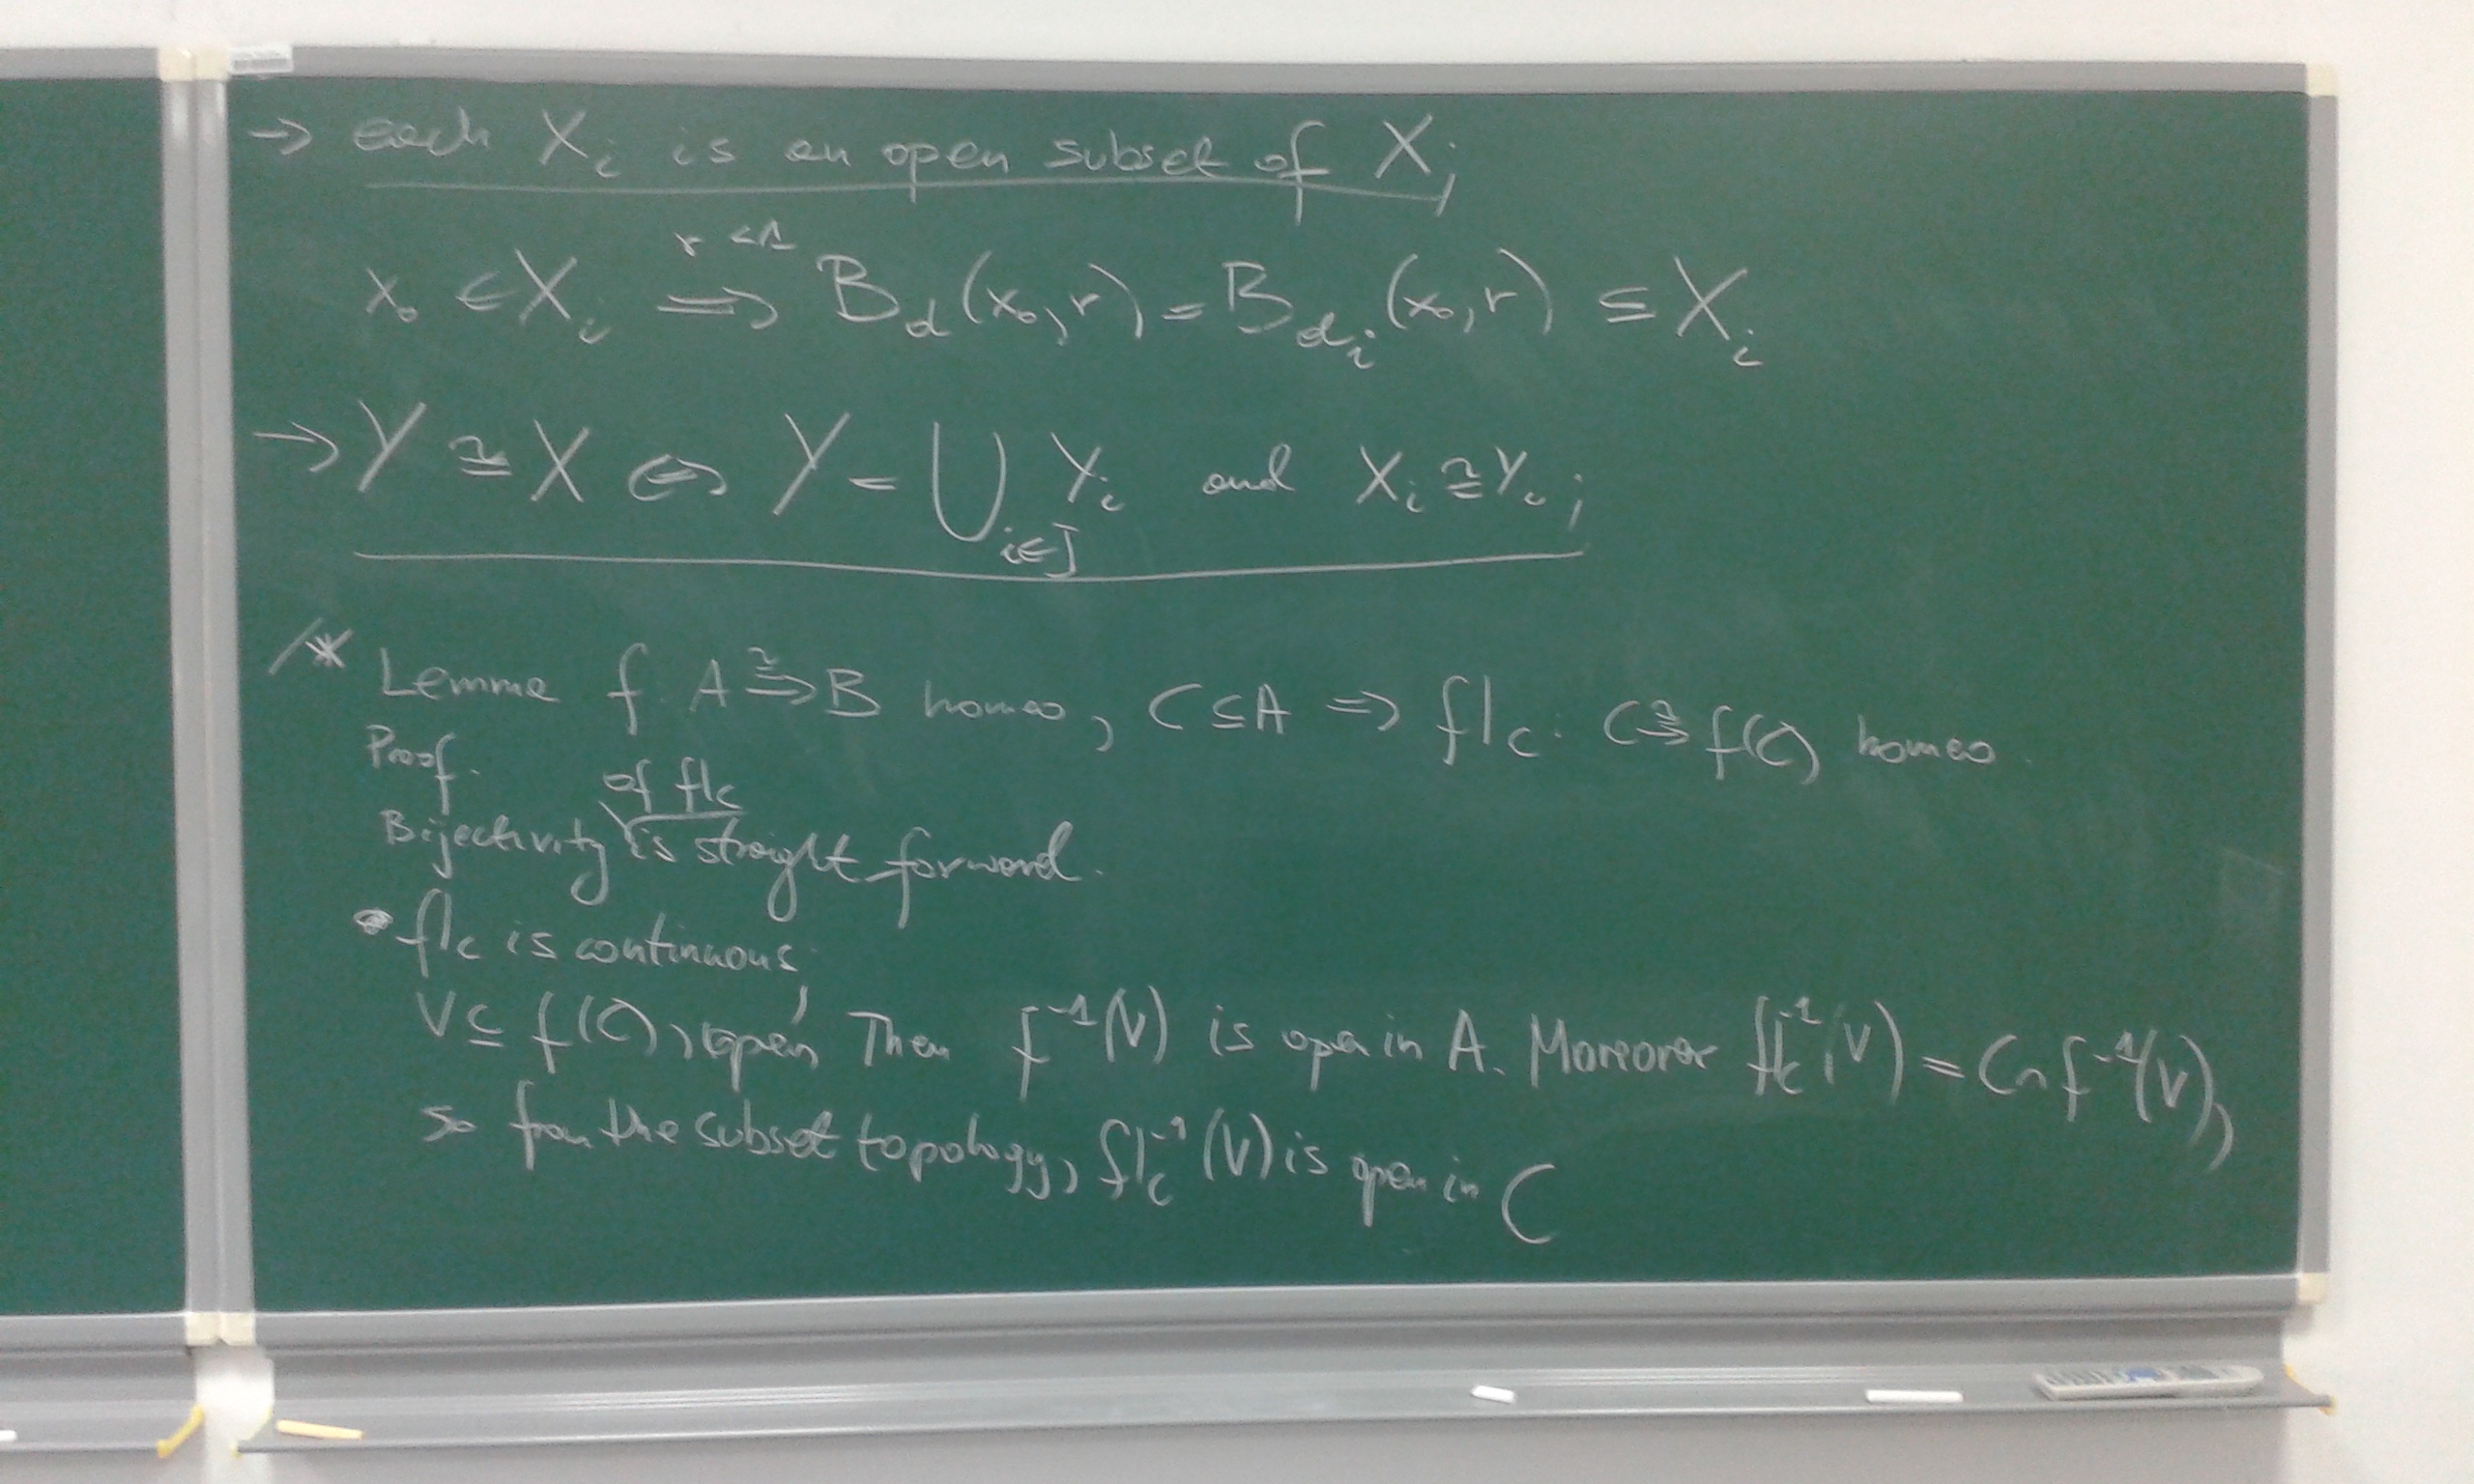 → each Xᵢ is an open subset of X;
x₀ ∈ Xᵢ ⟹ (r < 1) B_d(x₀, r) = B_{dᵢ}(x₀, r) ⊆ Xᵢ
→ Y ≅ X ⇔ Y = ⋃_{i∈I} Yᵢ and Xᵢ ≅ Yᵢ;
/* Lemma f: A ≅→ B homeo, C ⊆ A ⇒ f|_C: C ≅→ f(C) homeo.
Proof.
Bijectivity of f|_C is straight forward.
• f|_C is continuous;
V ⊆ f(C), open, Then f⁻¹(V) is open in A. Moreover f|_C⁻¹(V) = C ∩ f⁻¹(V),
so from the subset topology, f|_C⁻¹(V) is open in C